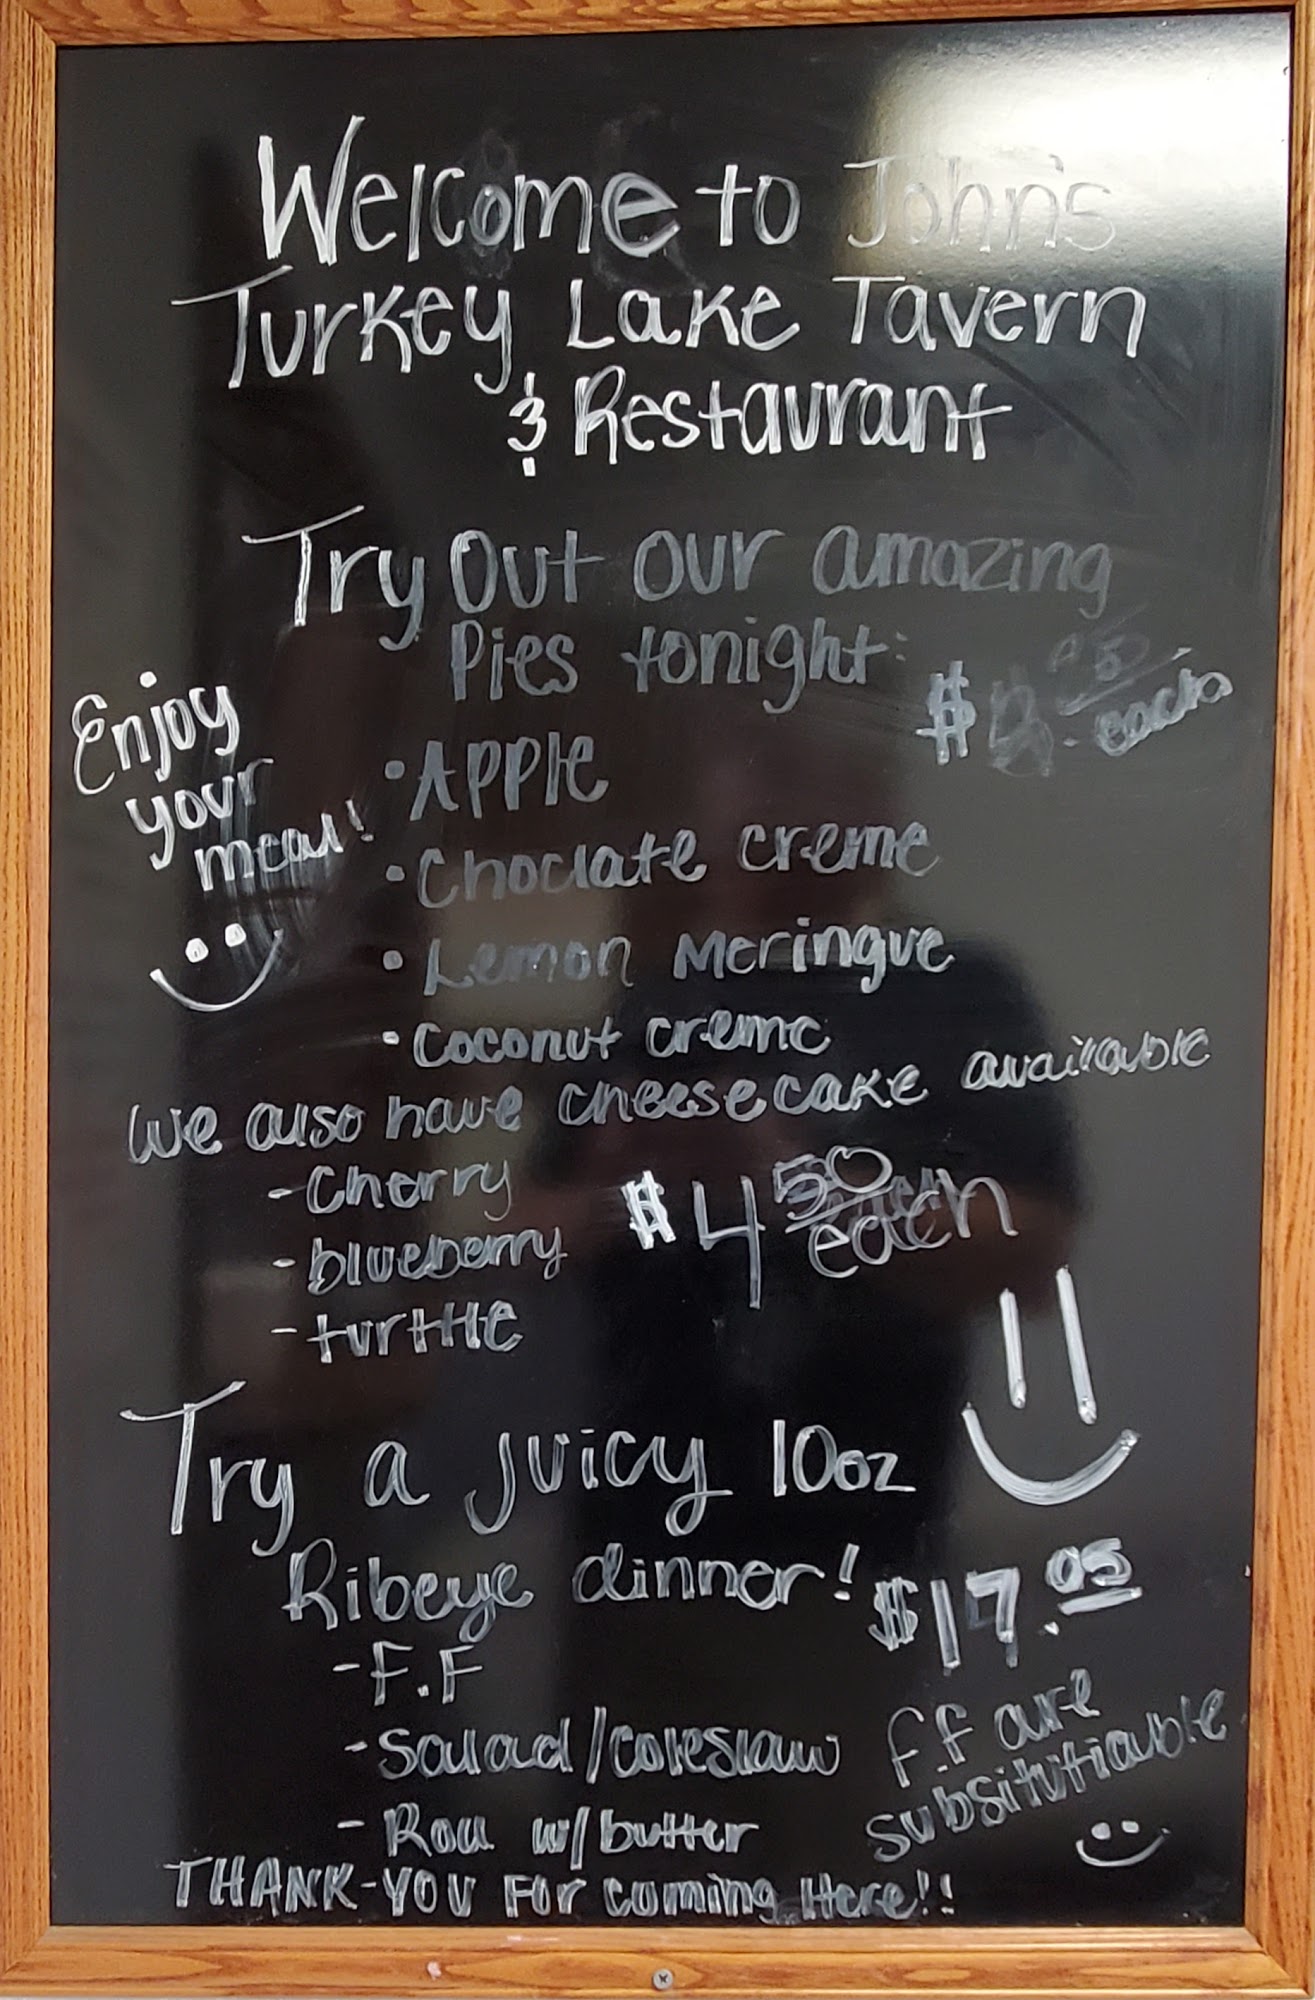 Welcome to John's
Turkey Lake Tavern
& Restaurant
Try Out our amazing
Pies tonight:
$ each
Enjoy
your
meal!
• Apple
• Choclate creme
• Lemon Meringue
• Coconut creme
We also have cheesecake available
- Cherry
- blueberry
- turttle
$4 50 each
Try a juicy 10oz
Ribeye dinner!
$17.05
- F.F
- Salad/coleslaw
- Roll w/ butter
f.f are
subsitutiable
THANK-YOU For coming Here!!